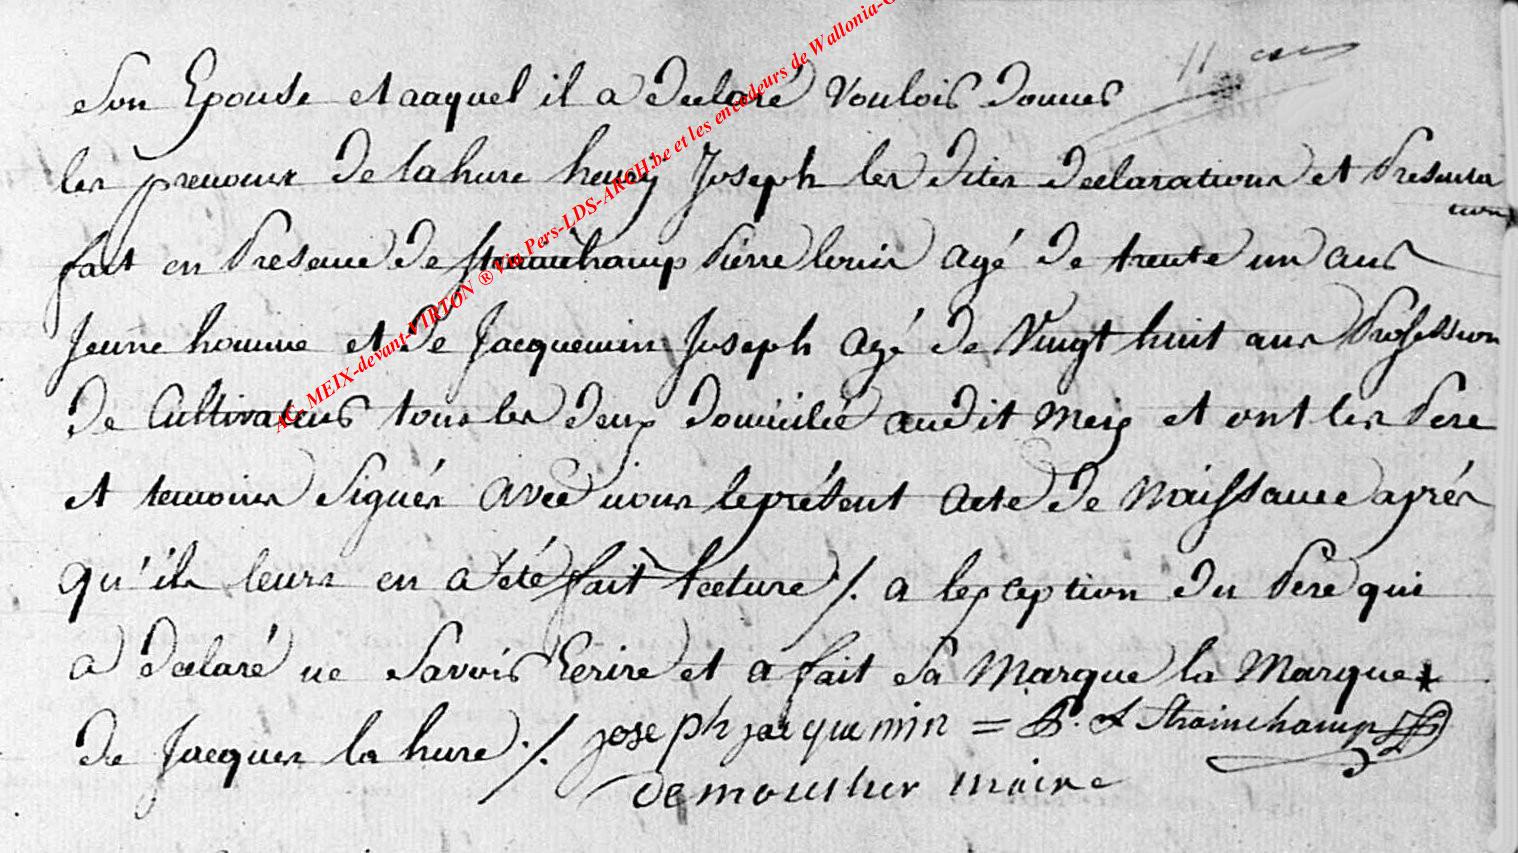 Son Epouse et aaquel il a declaré Voulois donnes
les prenoms de lahure henry Joseph les dites declarations et Presenta
tion
fait en Presence de strainchamp Pierre louis agé de trente un ans
Jeune homme et de Jacquemin Joseph agé de Vingt huit ans Profession
de Cultivateurs tous les deux domicilié audit Meix et ont les Pere
et temoins Signés avec nous leprésent acte de Naissance aprés
qu'ils leurs en a été fait lecture ./. a lexception du Pere qui
a declaré ne Savois Ecrire et a fait sa Marque la Marque *
de Jacques la hure ./. joseph jacquemin = P. L Strainchamp
demouthier maire
AC. MEIX-devant-VIRTON ® Via Pers-LDS-ARCH.be et les encodeurs de Wallonia-